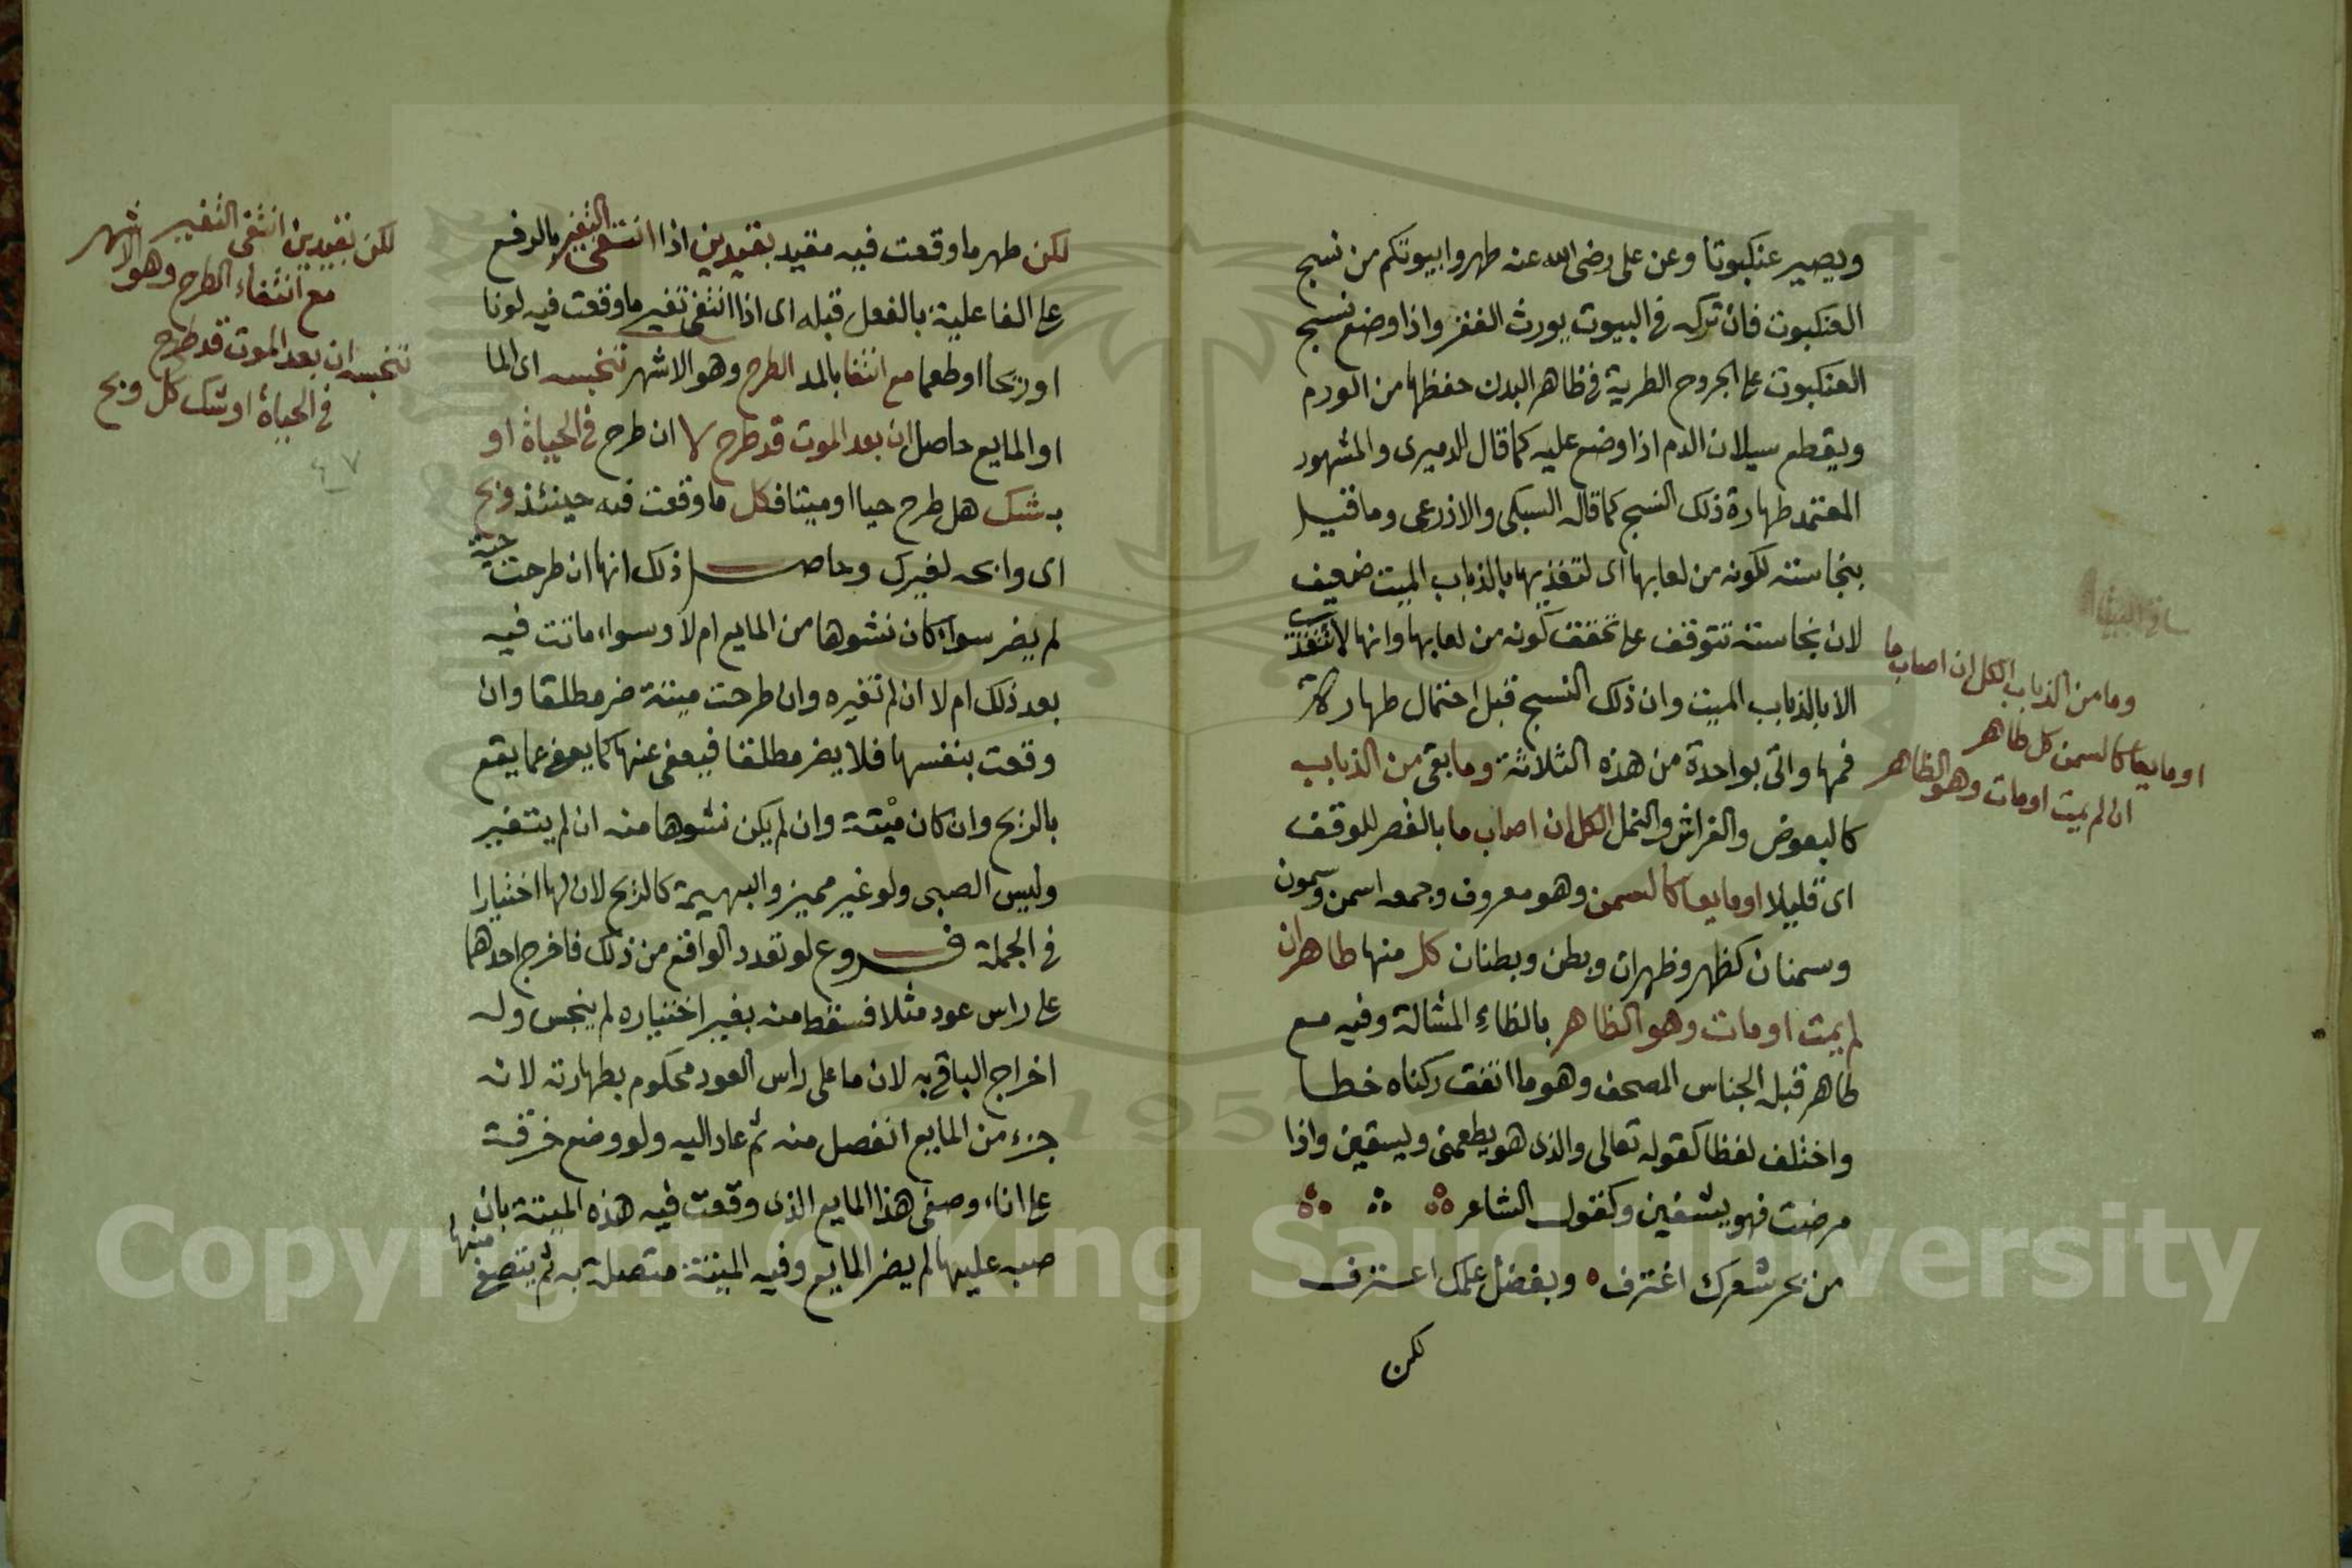 ويصير عنكبوتا وعن على رضى الله عنه طهروا بيوتكم من نسج
العنكبوت فان تركه فى البيوت يورث الفقر واذا وضع نسج
العنكبوت على الجروح الطرية فى ظاهر البدن حفظها من الورم
ويقطع سيلان الدم اذا وضع عليه كما قال الدميرى والمشهور
المعتمد طهارة ذلك النسج كما قاله السبكى والاذرعى وما قيل
بنجاسته لكونه من لعابها اى لتغذيها بالذباب الميت ضعيف
لان نجاسته تتوقف على تحقق كونه من لعابها وانها لا تتغذى
الا بالذباب الميت وان ذلك النسج قبل احتمال طهارة
فمها واتى بواحدة من هذه الثلاثة وما بقى من الذباب
كالبعوض والفراش والنمل الكل ان اصاب ما بالقصر للوقف
اى قليلا او مايعا كالسمن وهو معروف وجمعه اسمن وسمون
وسمنان كظهر وظهران وبطن وبطنان كل منها طاهر ان
لم يمت او مات وهو الظاهر بالظاء المشالة وفيه مع
طاهر قبله الجناس المصحف وهو ما اتفق ركناه خطا
واختلف لفظا كقوله تعالى والذى هو يطعمنى ويسقين واذا
مرضت فهو يشفين وكقول الشاعر
من بحر شعرك اغترف وبفضل علمك اعترف
لكن
وما من الذباب الكل ان اصاب ما
او مايعا كالسمن كل طاهر
ان لم يمت او مات وهو الظاهر
لكن طهر ما وقعت فيه مقيد بقيدين اذا انتفى التغير بالرفع
على الفاعلية بالفعل قبله اى اذا انتفى تغير ما وقعت فيه لونا
او ريحا او طعما مع انتفا بالمد الطرح وهو الاشهر تنجسه اى الما
او المايع حاصل ان بعد الموت قد طرح لا ان طرح فى الحياة او
به شك هل طرح حيا او ميتا فكل ما وقعت فيه حينئذ وبح
اى وابحه لغيرك وحاصل ذلك انها ان طرحت حية
لم يضر سواء كان نشوها من المايع ام لا وسواء ماتت فيه
بعد ذلك ام لا ان لم تغيره وان طرحت ميتة ضر مطلقا وان
وقعت بنفسها فلا يضر مطلقا فيعفى عنها كما يعفى عما يقع
بالريح وان كان ميتة وان لم يكن نشوها منه ان لم يتغير
وليس الصبى ولو غير مميز والبهيمة كالريح لان لها اختيارا
فى الجملة فروع لو تعدد الواقع من ذلك فاخرج احدهما
على راس عود مثلا فسقط منه بغير اختياره لم ينجس وله
اخراج الباقى به لان ما على راس العود محكوم بطهارته لانه
جزء من المايع انفصل منه ثم عاد اليه ولو وضع خرقة
على اناء وصفى هذا المايع الذى وقعت فيه هذه الميتة بان
صبه عليها لم يضر المايع وفيه الميتة متصلة به ثم يتصفى منها
لكن بقيدين انتفى التغير
مع انتفاء الطرح وهو الاشهر
تنجسه ان بعد الموت قد طرح
فى الحياة او شك كل وبح
٤٧
1957
Copyright © King Saud University